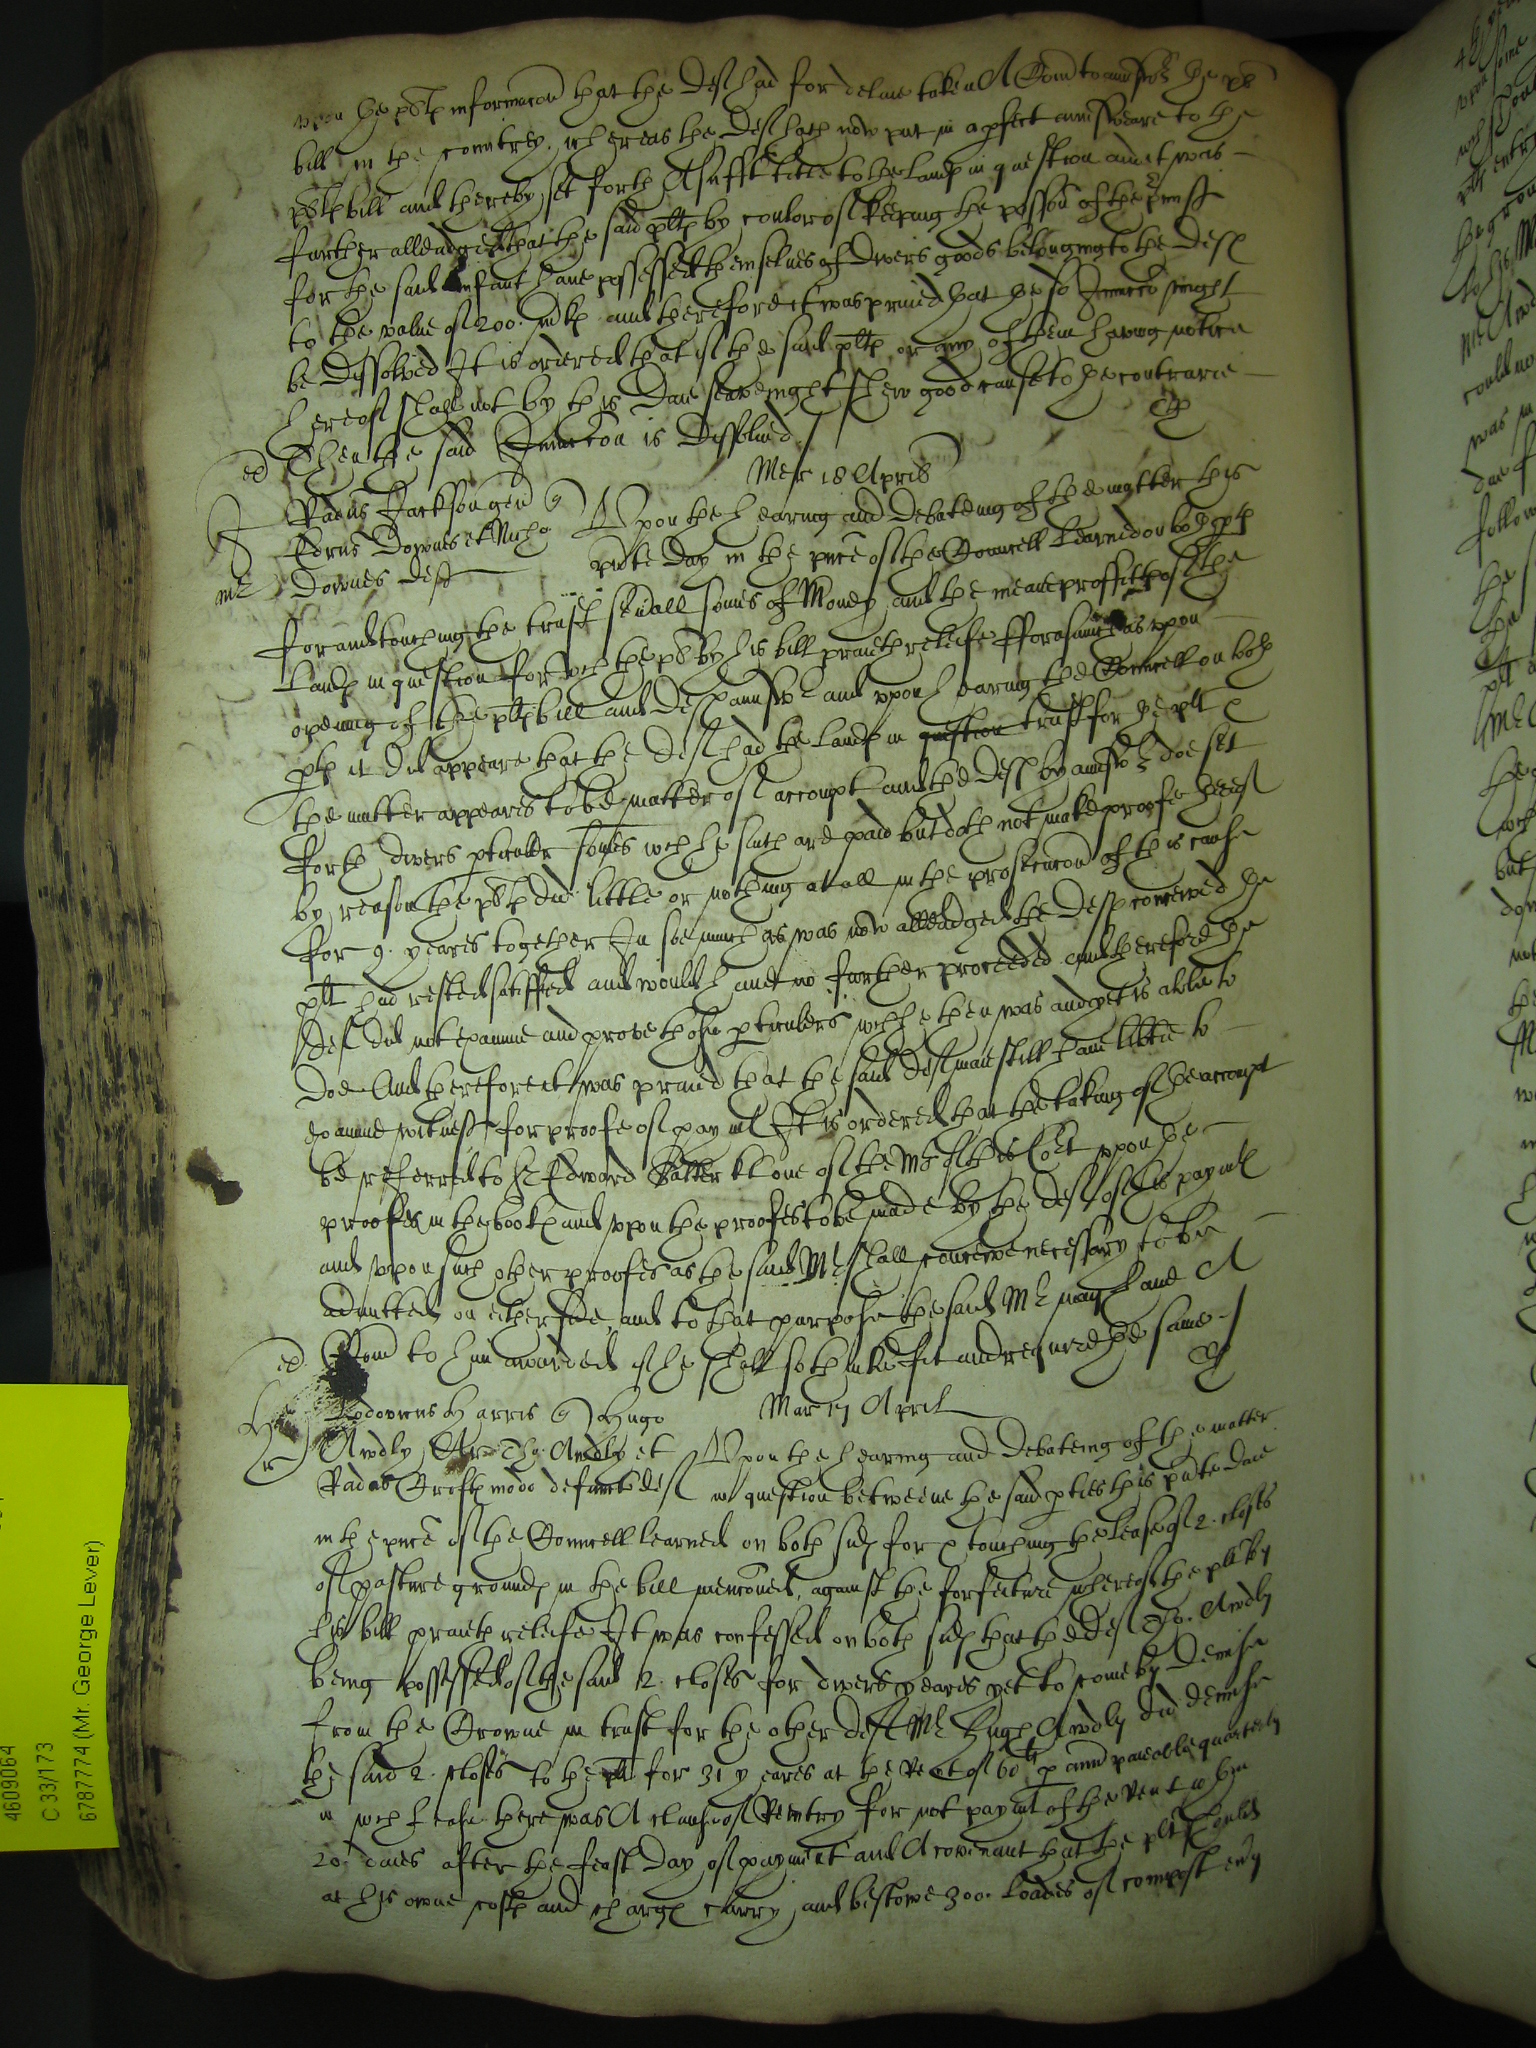 vpon the plts informacon that the deft had for delaie taken A Comd to aunswer the plts
bill in the countrey. whereas the deft hath now put in a pfect aunsweare to the
plts bill and thereby set forth A suffit title to the lands in question and it was
further alleadged that the said plts by coulor of keeping the possion of the pmisses
for the said infant haue possessed themselues of divers goods belonging to the deft
to the value of 200. mks and therefore it was praied that the said Iniunccon might
be dissolved It is ordered that if the said plts or any of them having notice
hereof shall not by this daie seavenight shew good cause to the contrarie
Then the said Iniunccon is dissolued
Mer 18 Aprilis
Radus Jackson gen q
Edrus Downes et Nicho
Downes defts
Upon the hearing and debateing of the matter this
pnte day in the pnce of the Councell learned on both pts
for and touching the trust seuall somes of Money and the meane proffitts of the
lands in question for wch the plt by his bill praieth releife fforasmuch as vpon
opening of the plts bill and defts aunswer and vpon hearing the Councell on both
pts it did appeare that the deft had the lands in question trust for the plt &
the matter appeares to be matter of accompt and the deft by aunswer doe set
forth divers pticuler somes wch he saith are paid but doth not make proofe thereof
by reason the plt did little or nothing at all in the prosecucon of this cause
for 9. yeares together In soe much as was now alleadged the deft conceived the
plt had rested satisfied and would haue no further proceeded and therefore the
deft did not examine and prove those pticulers wch he then was and yet is able to
doe And therefore it was praied that the said deft maie still haue libtie to
examine witnesses for proofe of paymt It is ordered that the taking of the accompt
be referred to Sr Edward Salter kt one of the Mrs of this Cort vpon the
proofes in the bookes and vpon the proofes to be made by the deft of his paymts
and vpon such other proofes as the said Mr shall conceive necessary to be
admitted on either side, and to that purpose the said Mr may haue A
Comd to him awarded if he shall so thinke fit and require the same
Mar 17 Aprilis
Lodovicus Harris q Hugo
Awdly Ar Tho. Awdly et
Radus Crofts modo defunct defts
Upon the hearing and debateing of the matter
in question betweene the said pties this pnte daie
in the pnce of the Councell learned on both sides for & touching the lease of 2. closes
of pasture grounds in the bill menconed, against the forfeiture whereof the plt by
his bill praieth releife It was confessed on both sides that the deft Tho. Awdly
being possessed of the said 2. closes for divers yeares yet to come by demise
from the Crowne in trust for the other deft Mr Hugh Awdly did demise
the said 2. closes to the plt for 31 yeares at the Rent of 60li p ann paieable quarterly
in wch lease there was A clause of Reentry for not paymt of the Rent within
20. daies after the feast day of paymt and A covenant that the plt should
at his owne costs and charges carry and bestowe 300. loades of compost euy
4609064
C 33/173
6787774 (Mr. George Lever)